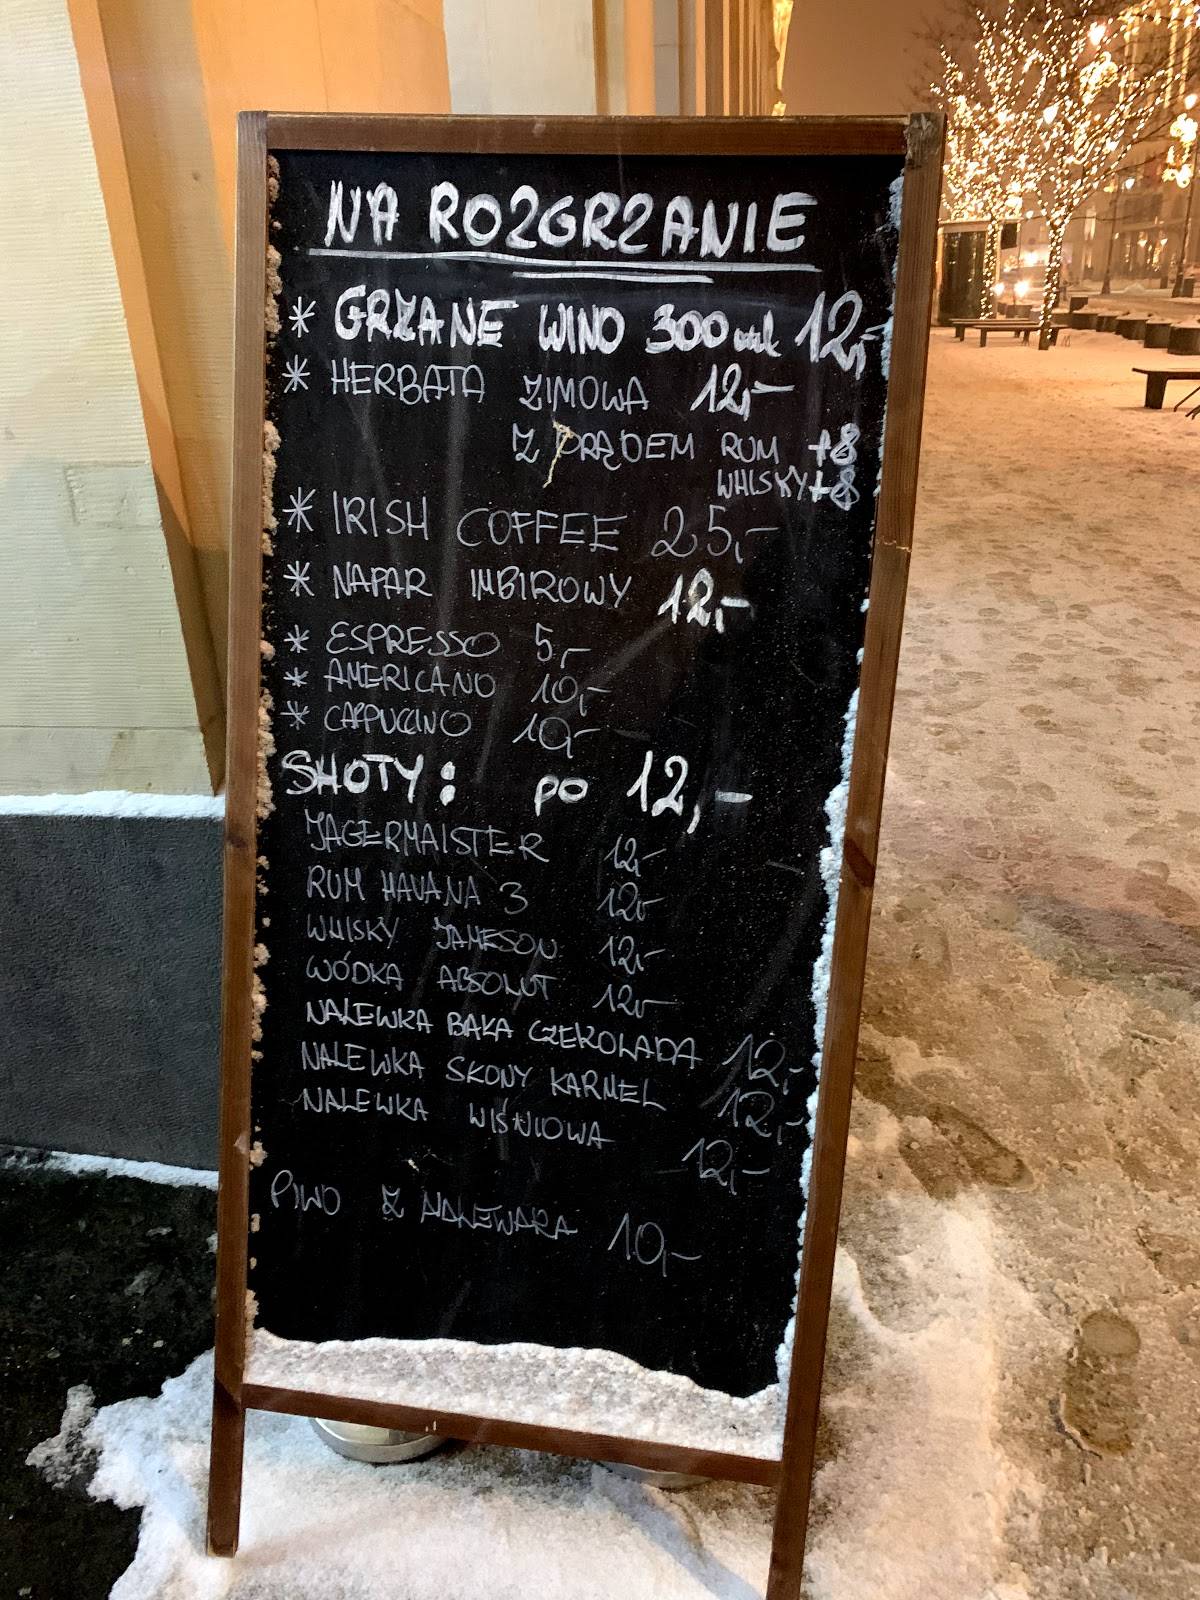 NA ROZGRZANIE
* GRZANE WINO 300 ml 12,-
* HERBATA ZIMOWA 12,-
Z PRĄDEM RUM +8
WHISKY +8
* IRISH COFFEE 25,-
* NAPAR IMBIROWY 12,-
* ESPRESSO 5,-
* AMERICANO 10,-
* CAPPUCCINO 10,-
SHOTY: po 12,-
JAGERMAISTER 12,-
RUM HAVANA 3 12,-
WHISKY JAMESON 12,-
WÓDKA ABSOLUT 12,-
NALEWKA BAŁA CZEKOLADA 12,-
NALEWKA SŁONY KARMEL 12,-
NALEWKA WIŚNIOWA 12,-
PIWO Z NALEWARA 10,-